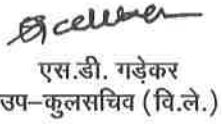 एस.डी. गड़ेकर
उप-कुलसचिव (वि.ले.)